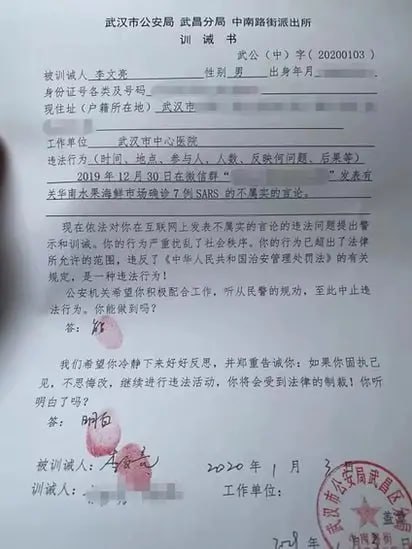 武汉市公安局 武昌分局 中南路街派出所
训 诫 书
武公（中）字（20200103）
被训诫人 李文亮 性别 男 出生年月
身份证号各类及号码
现住址（户籍所在地） 武汉市
工作单位 武汉市中心医院
违法行为（时间、地点、参与人、人数、反映何问题、后果等）
2019 年 12 月 30 日在微信群“ ”发表有
关华南水果海鲜市场确诊 7 例 SARS 的不属实的言论。
现在依法对你在互联网上发表不属实的言论的违法问题提出警
示和训诫。你的行为严重扰乱了社会秩序。你的行为已超出了法律
所允许的范围，违反了《中华人民共和国治安管理处罚法》的有关
规定，是一种违法行为！
公安机关希望你积极配合工作，听从民警的规劝，至此中止违
法行为。你能做到吗？
答：能
我们希望你冷静下来好好反思，并郑重告诫你：如果你固执己
见，不思悔改，继续进行违法活动，你将会受到法律的制裁！你听
明白了吗？
答：明白
被训诫人：李文亮 2020 年 1 月 3
训诫人： 工作单位：
武汉市公安局武昌区
盖章